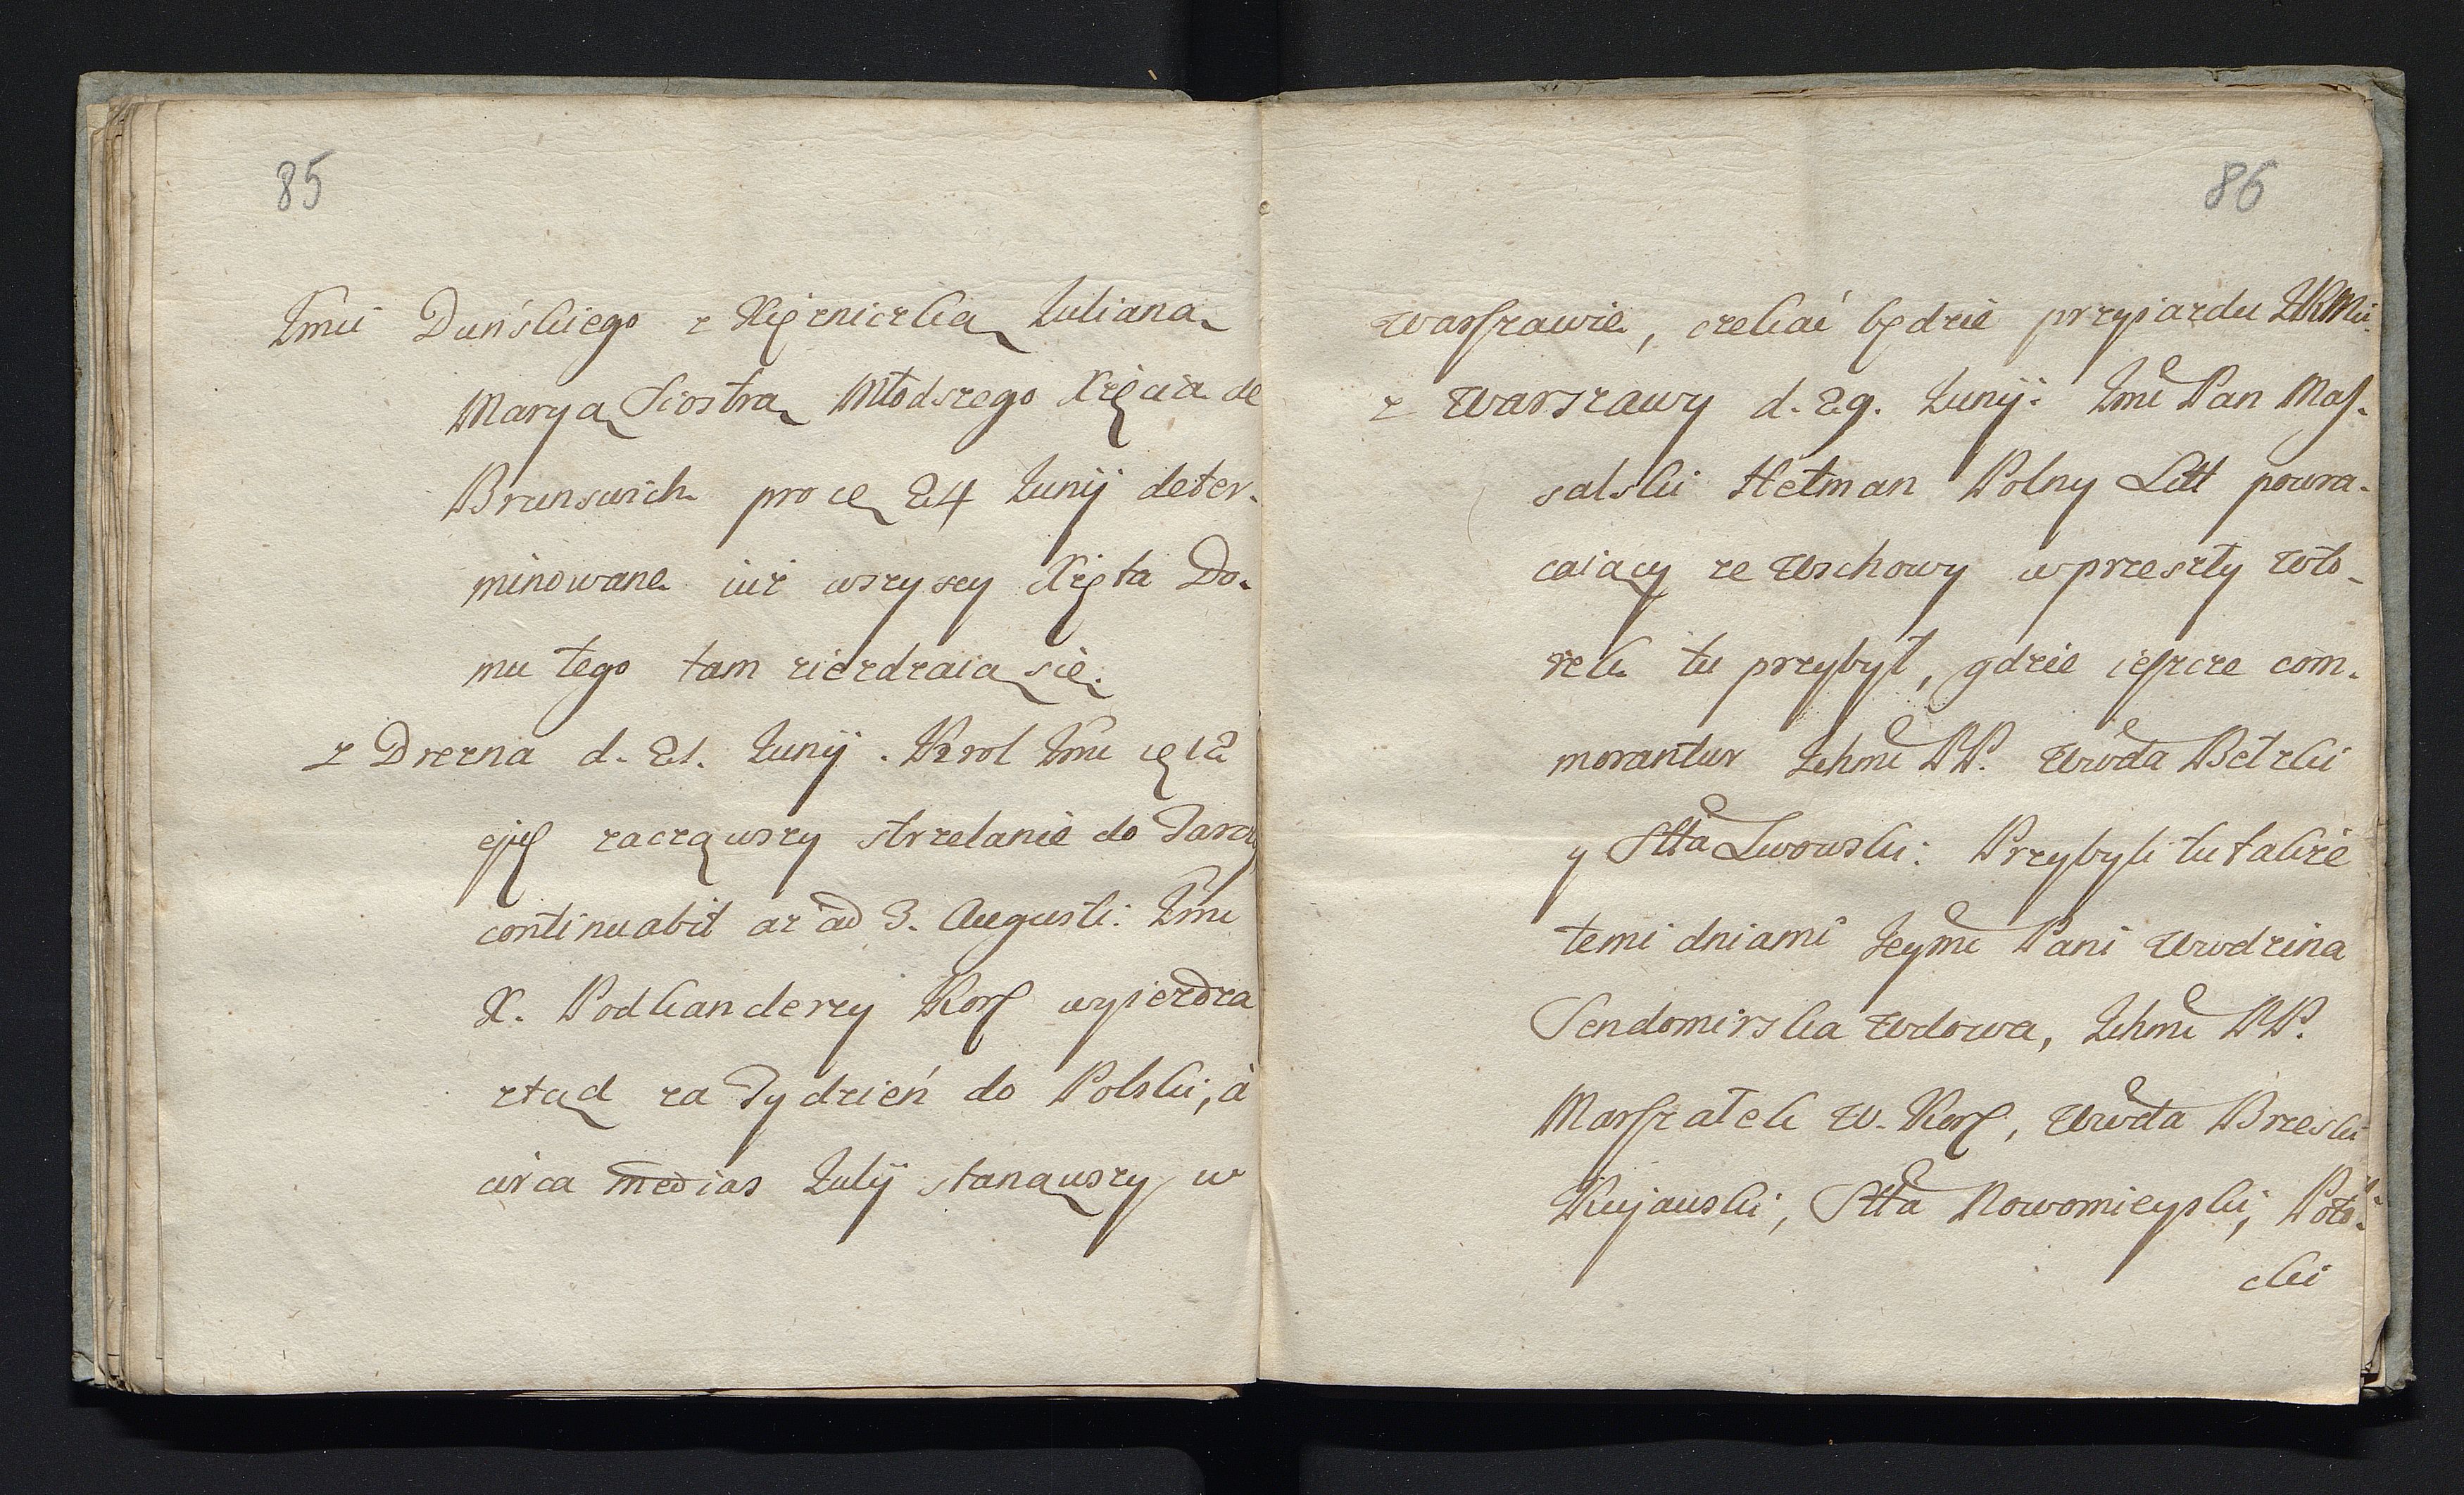 85
Jmci Duńskiego z Xiężniczką Julianą
Maryą Siostrą Młodszego Xięcia de
Brunswich pro ce 24 Junij deter-
minowane iuż wszyscy Xiążęta Do-
mu tego tam zieżdzaią się.
z Drezna d. 21. Junij. Krol Jmć 12
ejusd zacząwszy strzelanie do Tarczy
continuabit aż ad 3. Augusti. Jmć
X. Podkanclerzy Kor wyjeżdza
ztąd za Tydzień do Polski, à
circa medias Julij stanąwszy w
86
Warszawie, czekać będzie przyjazdu JKMci.
z Warszawy d. 29. Junij. Jmć Pan Mas-
salski Hetman Polny Litt powra-
caiący ze Wschowy w przeszły Wto-
rek tu przybył, gdzie ieszcze com-
morantur Jchmć PP. Wwda Bełzki
y Stta Lwowski: Przybyli tu także
temi dniami Jeymć Pani Wwdzina
Sendomirska Wdowa, Jchmć PP.
Marszałek W. Kor, Wwda Brzeski
Kujawski, Stta Nowomieyski, Poto-
cki